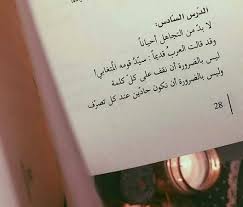 الدرس السادس:
لا بدّ من التجاهل أحياناً
وقد قالت العرب قديماً: سيّدُ قومه المُتغابي!
ليس بالضرورة أن نقف على كلّ كلمة
وليس بالضرورة أن نكون حادّين عند كلّ تصرّف
28